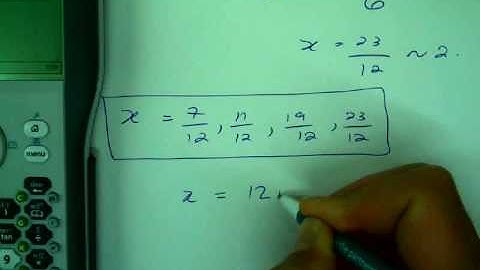 6
x = 23/12 ~ 2.
x = 7/12, 11/12, 19/12, 23/12
x = 12
menu
9